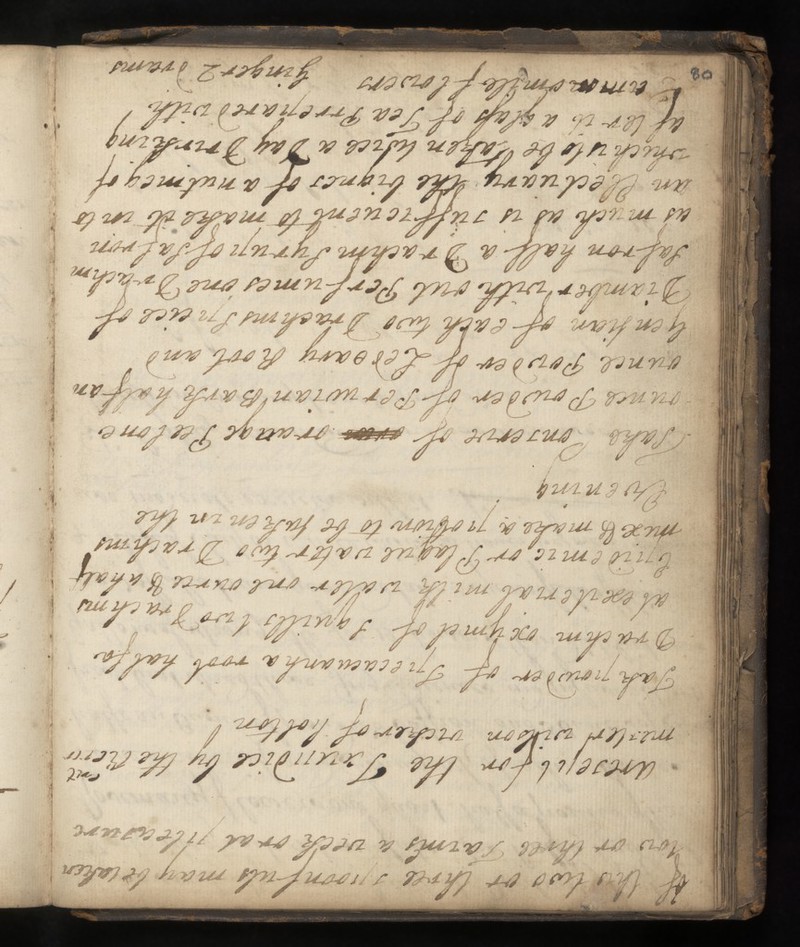 of this two or three spoonfuls may be taken
tow or three Tarms a week or at pleasure
a reseipt for the Jaundice by the Recei
mester wilson vicker of holton
Tak powder of Ipecacuanha root half a
Drachm oxymel of squills two Drachms
alexiterial milk water one ounce & a half
Epidemic or Plague water two Drachms
mix & make a potion to be taken in the
Evening
Take Conserve of orange Peel one
ounce Powder of Peruvian Bark half an
ounce Powder of Zedoary Root and
Gentian of each two Drachms Speice of
Diamber with out Perfumes one Drachm
Safron half a Drachm Syrup of Safron
as much as is sufficient to make it into
an Electuary the bigness of a nutmeg of
which is to be taken twice a Day Drinking
after it a glass of Tea Prrepared with
Camomile flowers Ginger 2 drams
80